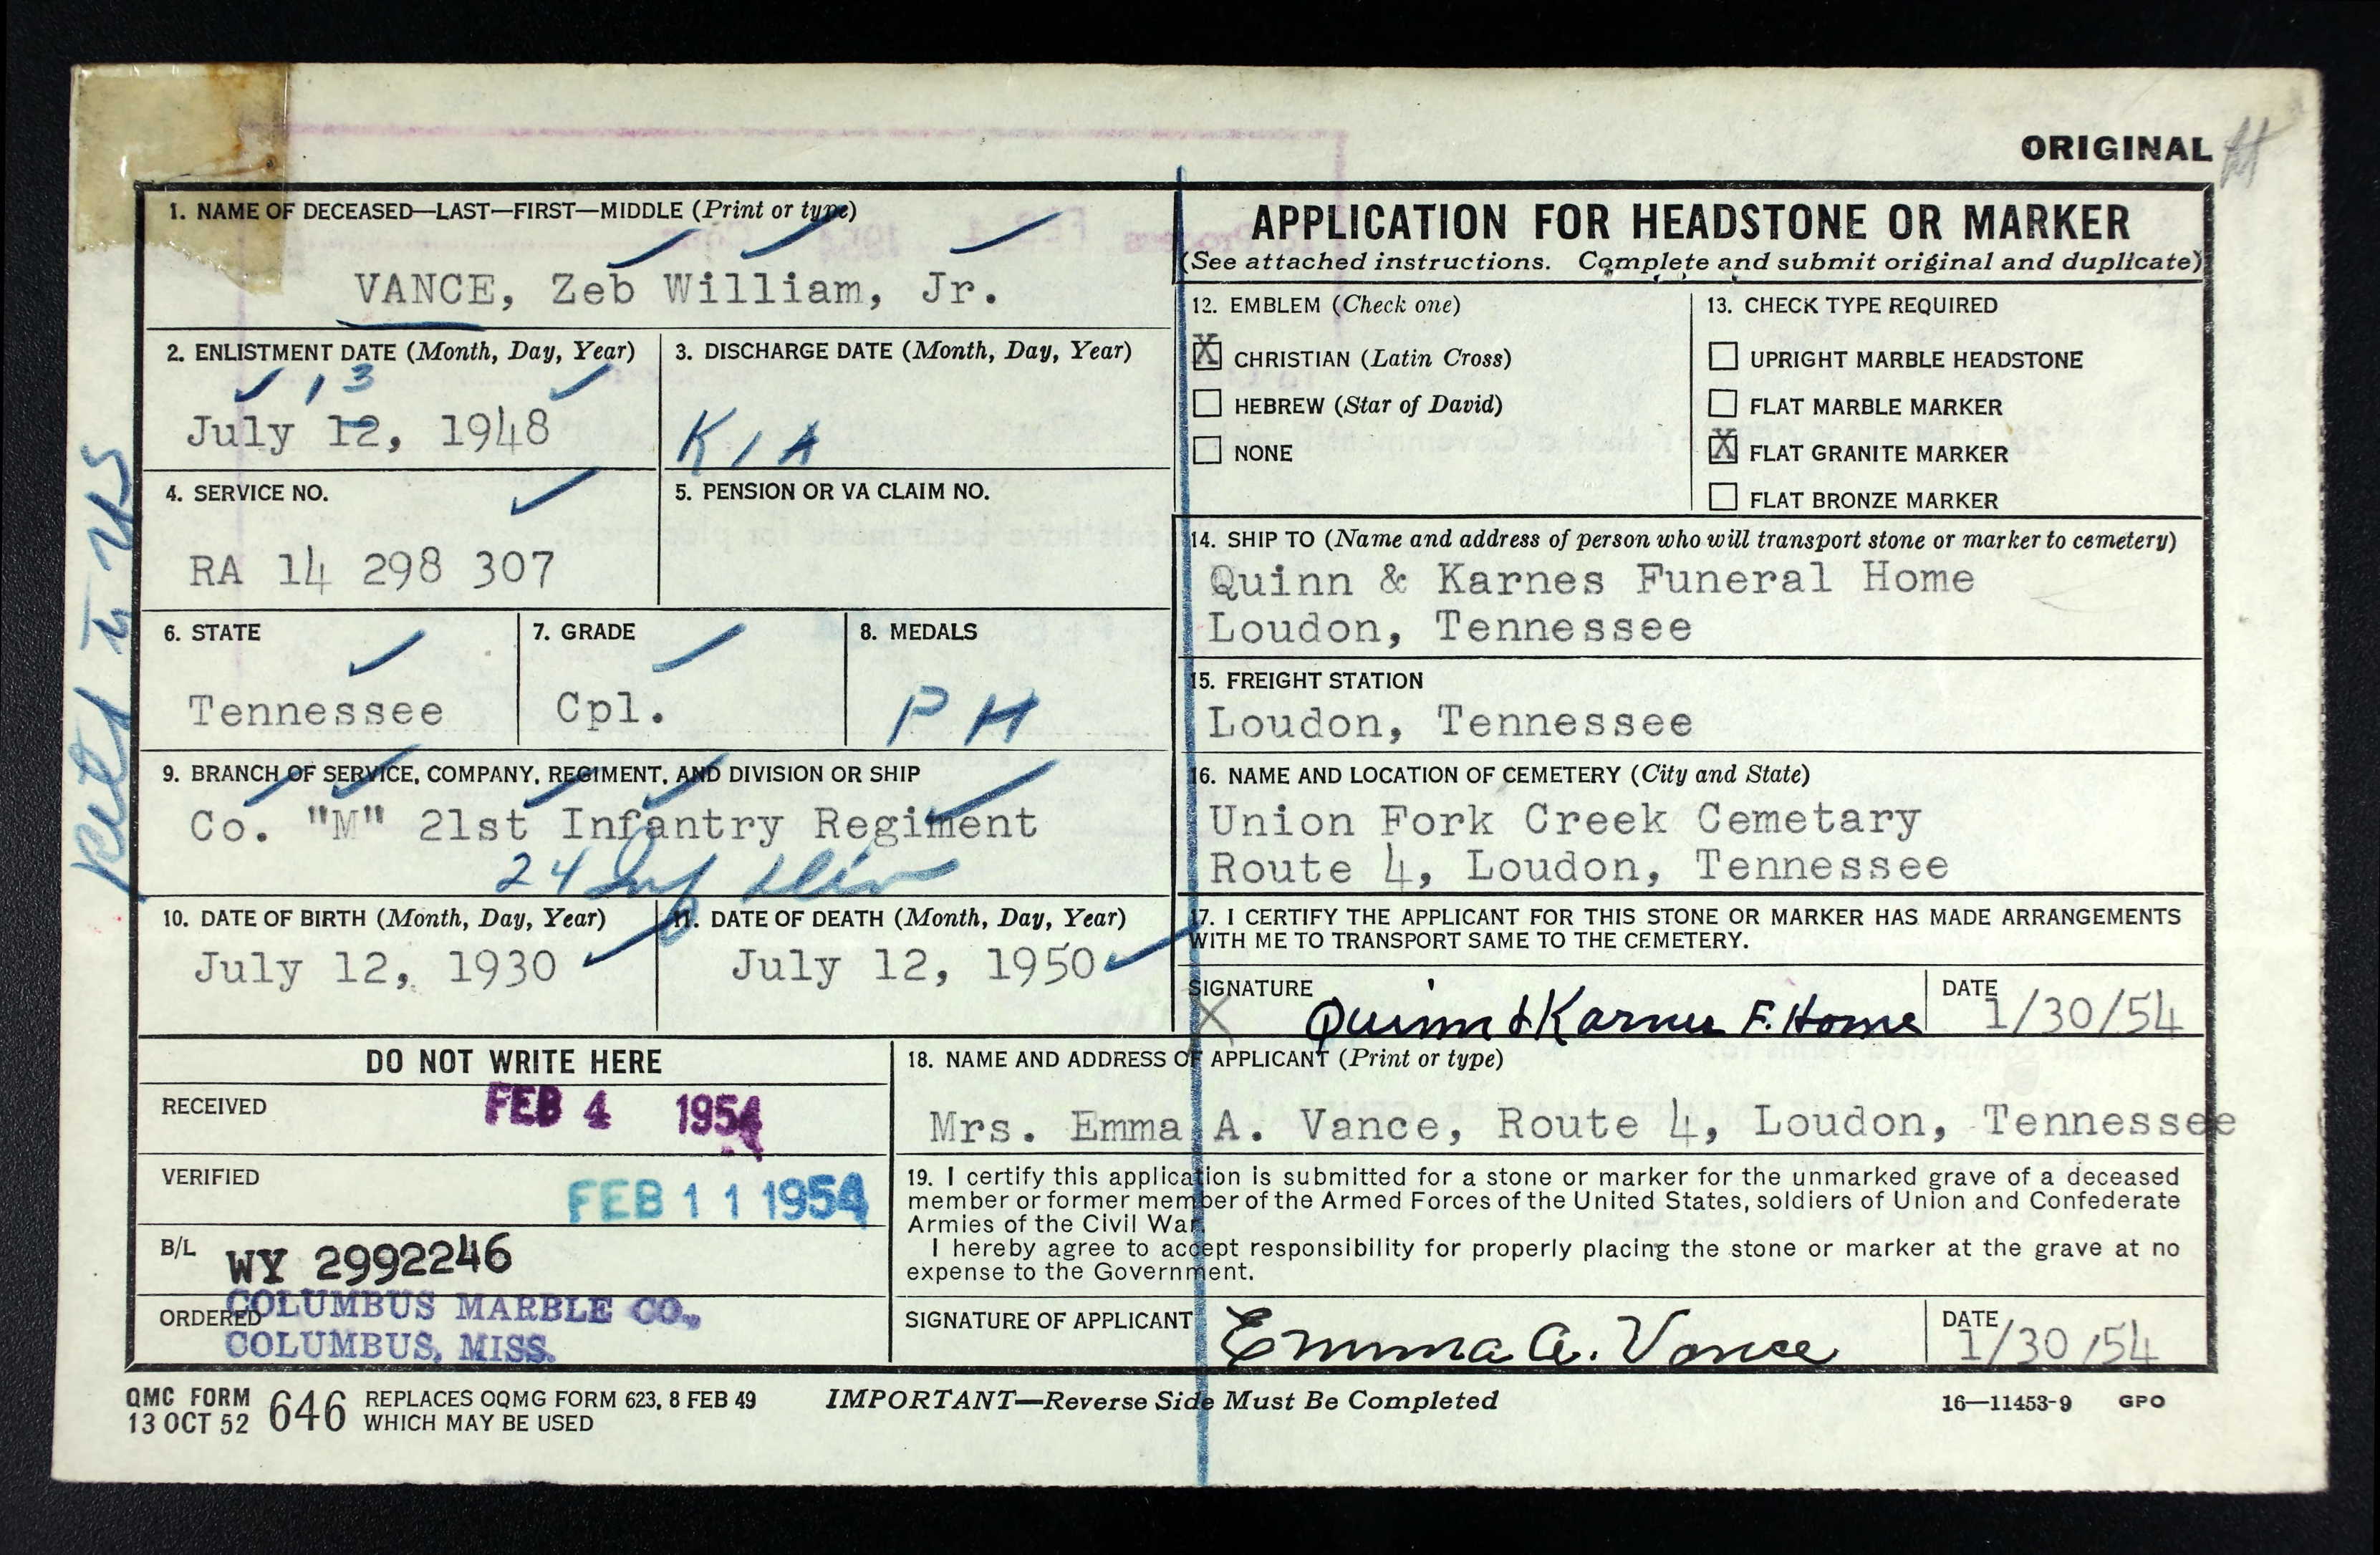 ORIGINAL
1. NAME OF DECEASED—LAST—FIRST—MIDDLE (Print or type)
VANCE, Zeb William, Jr.
2. ENLISTMENT DATE (Month, Day, Year)
13
July 12, 1948
3. DISCHARGE DATE (Month, Day, Year)
KIA
4. SERVICE NO.
RA 14 298 307
5. PENSION OR VA CLAIM NO.
6. STATE
Tennessee
7. GRADE
Cpl.
8. MEDALS
PH
9. BRANCH OF SERVICE, COMPANY, REGIMENT, AND DIVISION OR SHIP
Co. "M" 21st Infantry Regiment
24 Inf Div
10. DATE OF BIRTH (Month, Day, Year)
July 12, 1930
11. DATE OF DEATH (Month, Day, Year)
July 12, 1950
APPLICATION FOR HEADSTONE OR MARKER
(See attached instructions. Complete and submit original and duplicate)
12. EMBLEM (Check one)
X CHRISTIAN (Latin Cross)
HEBREW (Star of David)
NONE
13. CHECK TYPE REQUIRED
UPRIGHT MARBLE HEADSTONE
FLAT MARBLE MARKER
X FLAT GRANITE MARKER
FLAT BRONZE MARKER
14. SHIP TO (Name and address of person who will transport stone or marker to cemetery)
Quinn & Karnes Funeral Home
Loudon, Tennessee
15. FREIGHT STATION
Loudon, Tennessee
16. NAME AND LOCATION OF CEMETERY (City and State)
Union Fork Creek Cemetary
Route 4, Loudon, Tennessee
17. I CERTIFY THE APPLICANT FOR THIS STONE OR MARKER HAS MADE ARRANGEMENTS
WITH ME TO TRANSPORT SAME TO THE CEMETERY.
SIGNATURE
X Quinn & Karnes F. Home
DATE
1/30/54
DO NOT WRITE HERE
RECEIVED
FEB 4 1954
VERIFIED
FEB 11 1954
B/L
WY 2992246
ORDERED
COLUMBUS MARBLE CO.,
COLUMBUS, MISS.
18. NAME AND ADDRESS OF APPLICANT (Print or type)
Mrs. Emma A. Vance, Route 4, Loudon, Tennessee
19. I certify this application is submitted for a stone or marker for the unmarked grave of a deceased
member or former member of the Armed Forces of the United States, soldiers of Union and Confederate
Armies of the Civil War.
I hereby agree to accept responsibility for properly placing the stone or marker at the grave at no
expense to the Government.
SIGNATURE OF APPLICANT
Emma A. Vance
DATE
1/30/54
QMC FORM
13 OCT 52
646
REPLACES OQMG FORM 623, 8 FEB 49
WHICH MAY BE USED
IMPORTANT—Reverse Side Must Be Completed
16—11453-9 GPO